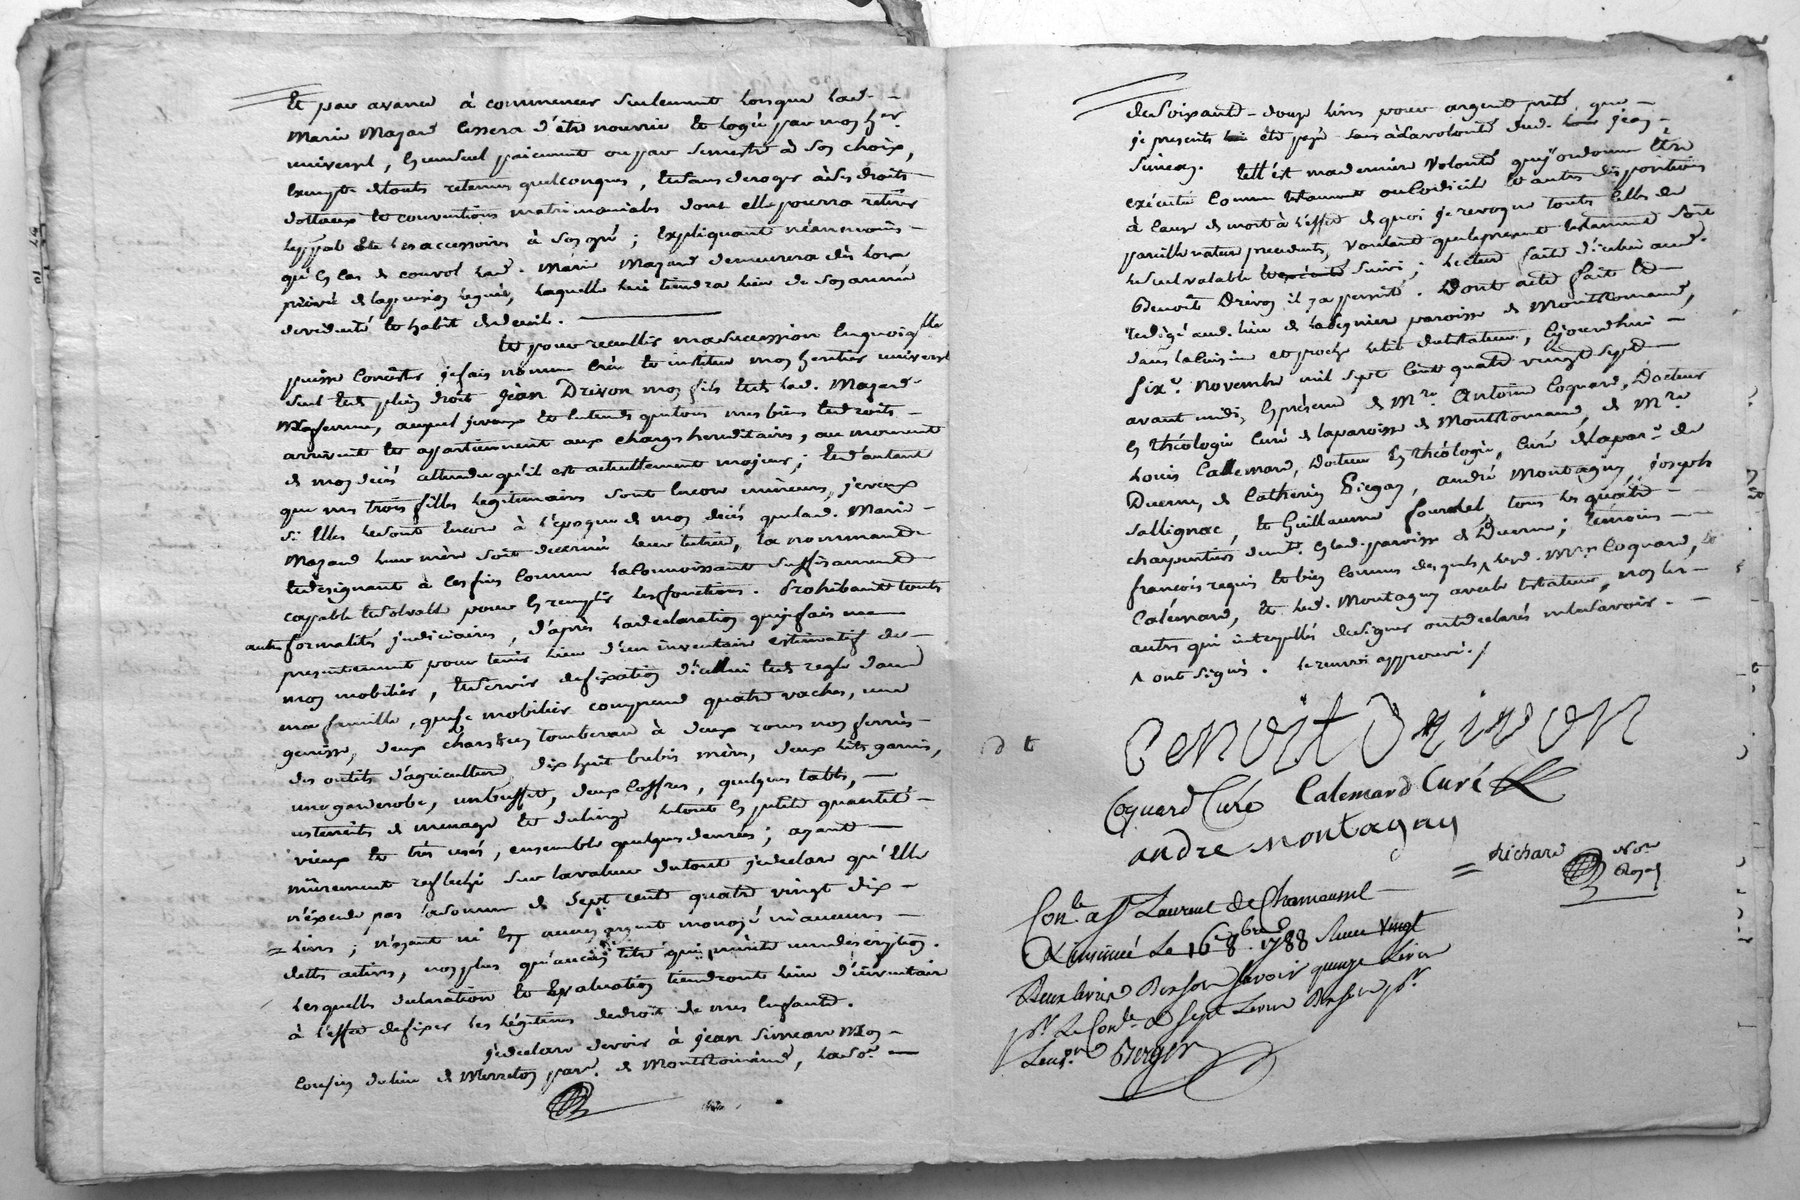 Et par avance à commencer seulement lorsque lad. –
Marie Mazard cessera d'être nourrie et logée par mon her.
universel, en un seul paiement ou par semestre à son choix,
exempte de touts retenues quelconques, et sans deroger à ses droits
dottaux et conventions matrimoniales dont elle pourra retirer
et les accessoires à son gré ; Expliquant néanmoins –
qu'en cas de convol lad. Marie Mazard demeurera dès lors
privée de la pension leguée, laquelle lui tiendra lieu de son année
de viduité et habit de deuil. —
Et pour recueillir ma succession en quoi qu'elle
puisse consister je fais nomme crée et institue mon heritier universel
seul et de plein droit Jean Drivon mon fils et de lad. Mazard
ma femme, auquel je veux et entends que tous mes biens et droits –
arrivent et appartiennent aux charges hereditaires, au moment
de mon décés attendu qu'il est actuellement majeur ; et d'autant
que mes trois filles legitimaires sont encore mineures, je veux
si elles le sont encore à l'époque de mon décés que lad. Marie –
Mazard leur mère soit decernée leur tutrice, la nommant
et designant à ces fins comme la connoissant suffisament
capable et solvable pour en remplir les fonctions. Prohibant touts
autre formalités judiciaires, d'après la declaration que j'y fais
presentement pour tenir lieu d'un inventaire estimatif de –
mon mobilier, et servir de fixation d'icellui et de regle dans
ma famille, que ce mobilier comprend quatre vaches, une
genisse, deux chars et un tombereau à deux roues non ferrés –
des outils d'agriculture, dix huit brebis mères, deux lits garnis,
une garderobe, un buffet, deux coffres, quelques tables, –
ustensils de menage et du linge le tout en petite quantité –
vieux et très usés, ensemble quelques denrées ; ayant –
mûrement reflechi sur la valeur du tout je declare qu'elle
n'éxcede pas la somme de sept cent quatre vingt dix –
= livres ; n'ayant ni en aucun argent monoyé ni aucunes –
dettes actives, non plus qu'aucun titre qui mérite une description.
Lesquelles declaration et Evaluation tiendront lieu d'inventaire
à l'effet de fixer les légitimes de droit de mes enfants.
Je declare devoir à Jean Simean mon –
cousin du lieu de par. de Montromand, la so. –
de soixante-douze livres pour argent prêté que –
je promets être payé sans à la volonté dud. Jean –
Simean. Telle est ma derniere volonté que j'ordonne être
exécuté comme testament ou codicile et autres dispositions
à cause de mort à l'effet de quoi je revoque touts celles de
pareille nature precedentes, voulant que le present testament soit
le seul valable suivi ; lecture faite d'icelui aud.
Benoit Drivon il y a persisté. Dont acte fait et –
redigé aud. lieu de paroisse de Montromand,
dans la cuisine et proche le lit du testateur, cejourdhui –
six.e novembre mil sept cent quatre vingt sept –
avant midi, en présence de M.re Antoine Coquard, Docteur
en théologie curé de la paroisse de Montromand, de M.re
Louis Calemard, Docteur en théologie, curé de la par.e de
Duerne, de Catherin Piegay, andré Montagny, joseph
Sallignac, et Guillaume Fourdel, tous les quatre –
charpentiers demt. en lad. paroisse de Duerne ; témoins –
francois requis et bien connus desquels lesd. M.res Coquard, et
Calémard, et led. Montagny avec le testateur, non les –
autres qui interpellés de signer ont declarés ne le savoir. –
ont signés. le renvoi approuvé ./
Benoit Drivon
Coquard Curé Calemard Curé
andre Montagny
Richard No.re Royal
Con.lé a St Laurent de Chamousset –
& insinué Le 16 8bre 1788 Recu vingt
Deux livres Dix sols savoir quinze Livres
pr Le Con.le & Sept Livres Dix sols pr.
L'insin. Berger